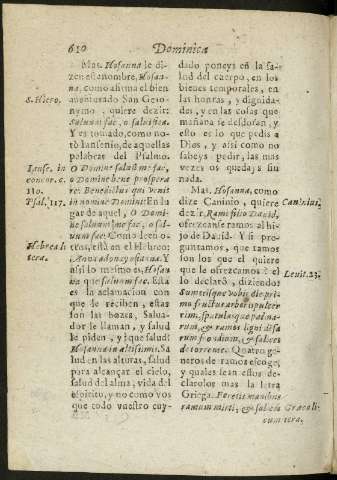 610
Dominica
Mas. Hosanna le di-
zen este nombre, Hosan-
na, como afirma el bien
S. Hiero,
aventurado San Gero-
nymo, quiere dezir:
Saluum fac, o saluifica.
Y es tomado, como no-
tò Iansenio, de aquellas
palabras del Psalmo.
Ianse. in
O Domine saluũ me fac,
concor. c.
o Domine bene prospera
110.
re: Benedictus qui venit
Psal. 117.
in nomine Domini: En lu
gar de aquel, O Domi-
ne saluum me fac, o sal-
uum fac. Como lee no-
Hebrea li
tras, està en el Hebreo;
tera.
Anna
Y
assi lo mismo es, Hosan
na que saluum fac. Esta
es la aclamacion con
que le reciben, estas
son las bozes, Salua-
dor le llaman, y salud
le piden, y que salud?
Hosanna in altissimis. Sa
lud en las alturas, salud
para alcançar el cielo,
salud del alma, vida del
espiritu, y no como vos
que todo vuestro cuy-
dado poneys en la sa-
lud del cuerpo, en los
bienes temporales, en
las honras, y dignida-
des, y en las cosas que
mañana se desdoran, y
esto es lo que pedis a
Dios, y assi como no
sabeys pedir, las mas
vezes os quedays sin
nada.
Mas. Hosanna, como
dize Caninio, quiere
Caninius.
dezir, Rami filio Dauid,
ofrezcanse ramos al hi-
jo de Dauid. Y si pre-
guntamos, que ramos
son los que el quiere
que le ofrezcamos? el
Leuit. 23.
lo declarò, diziendo:
Sumetisque vobis die pri
mo fructus arboris pulcer
rim, spatulasque palma-
rum, & ramos ligni densa
rum frondium, & salices
de torrente. Quatro ge-
neros de ramos escoge,
y quales sean estos de-
claroIos mas la letra
Griega. Feretis manibus
ramum mirti, & salicis
Græco li
cum
tera.